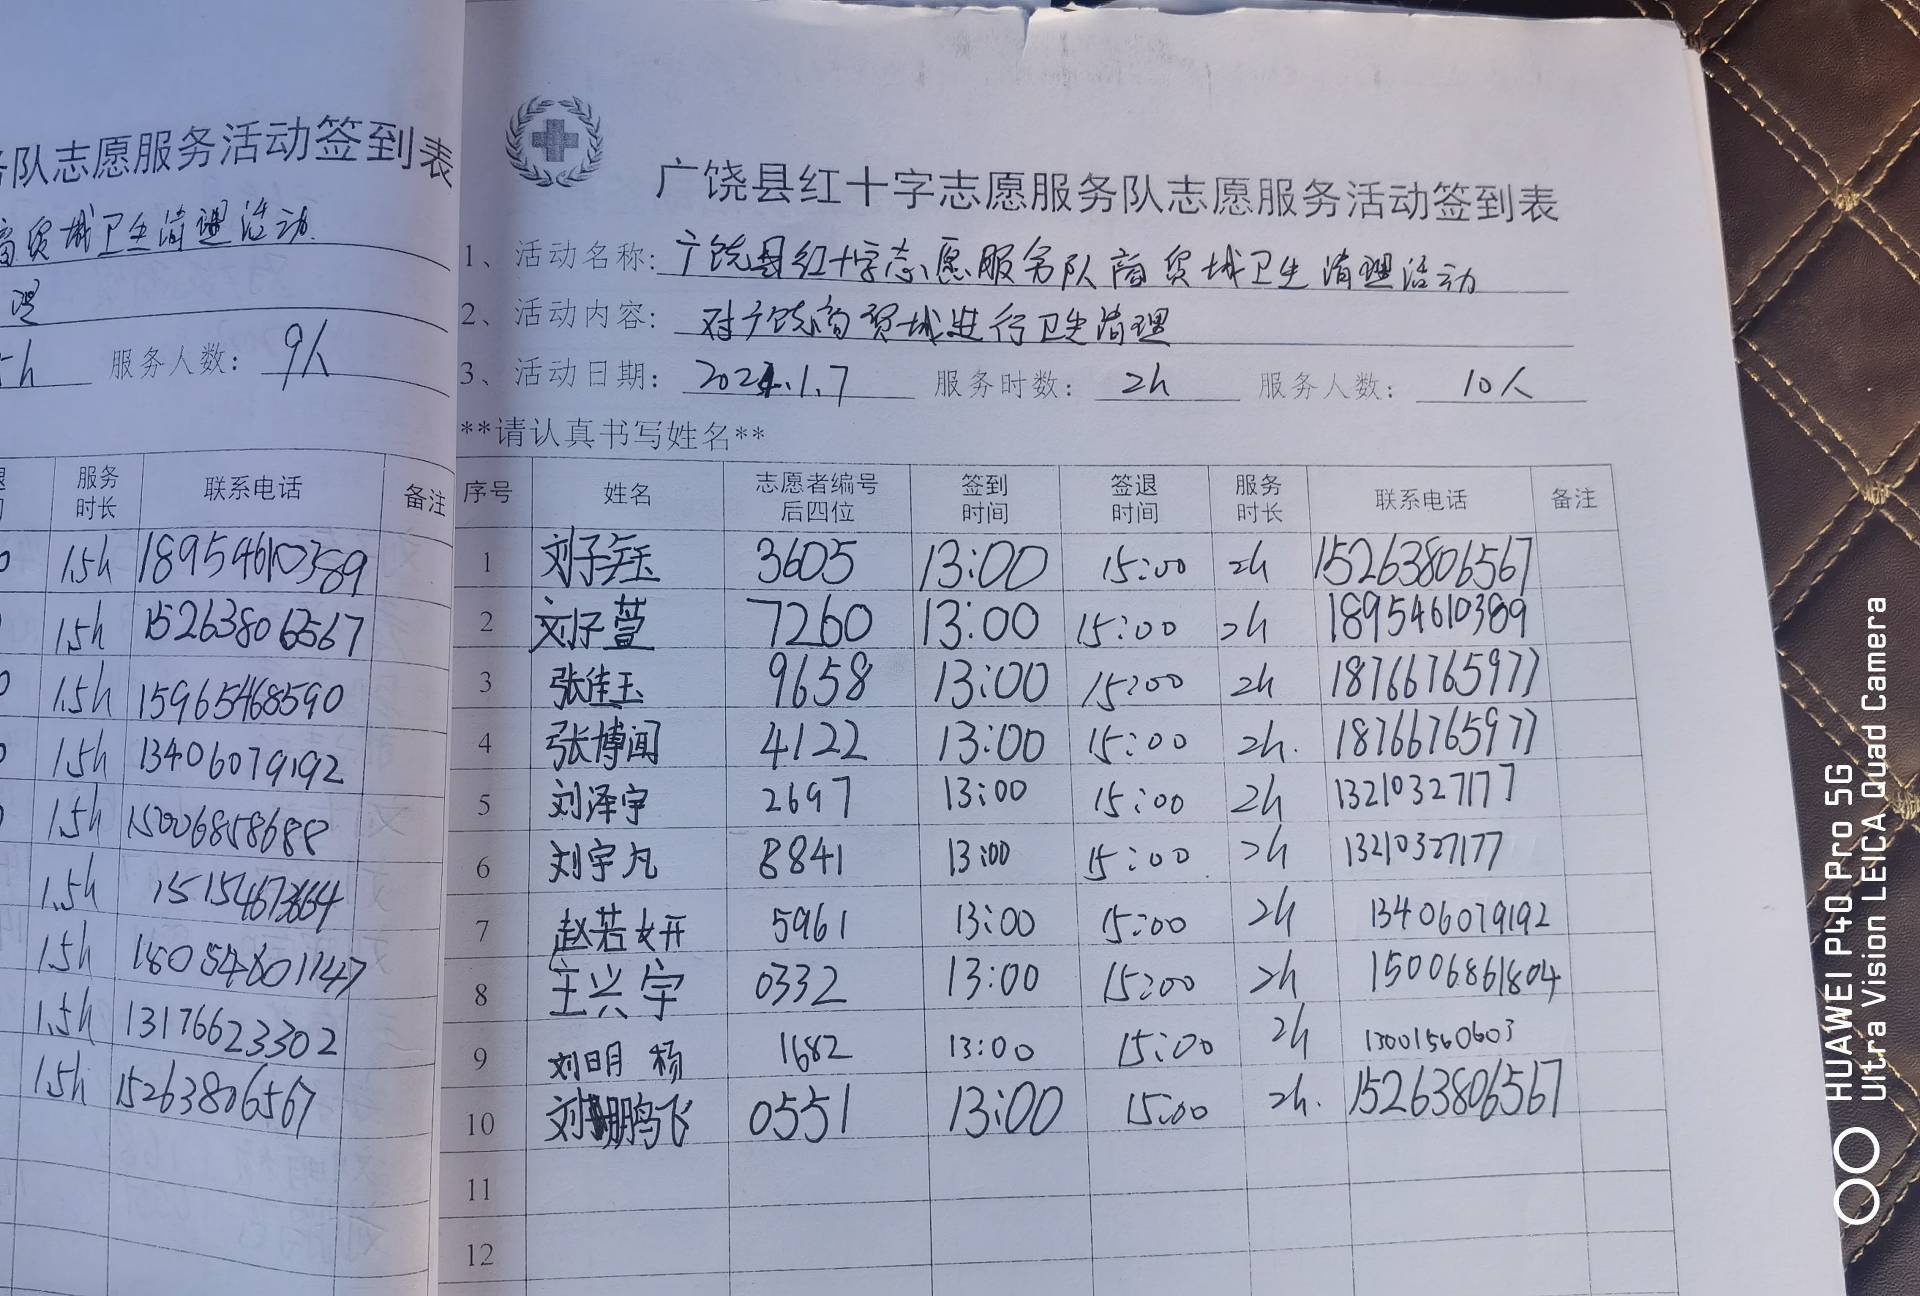 队志愿服务活动签到表
商贸城卫生清理活动
理
服务人数: 9人
服务时长 联系电话 备注
1.5h 18954610389
1.5h 15263806567
1.5h 15965468590
1.5h 13406079192
1.5h 15006858688
1.5h
1.5h
1.5h 13176623302
1.5h 15263806567
广饶县红十字志愿服务队志愿服务活动签到表
1、活动名称: 广饶县红十字志愿服务队商贸城卫生清理活动
2、活动内容: 对广饶商贸城进行卫生清理
3、活动日期: 2021.1.7 服务时数: 2h 服务人数: 10人
**请认真书写姓名**
序号 姓名 志愿者编号后四位 签到时间 签退时间 服务时长 联系电话 备注
1 刘子钰 3605 13:00 15:00 2h 15263806567
2 刘子萱 7260 13:00 15:00 2h 18954610389
3 张佳玉 9658 13:00 15:00 2h 18766765977
4 张博闻 4122 13:00 15:00 2h. 18766765977
5 刘泽宇 2697 13:00 15:00 2h 13210327177
6 刘宇凡 8841 13:00 15:00 2h 13210327177
7 赵若妍 5961 13:00 15:00 2h 13406079192
8 王兴宇 0332 13:00 15:00 2h 15006861804
9 刘明杨 1682 13:00 15:00 2h 13001560603
10 刘鹏飞 0551 13:00 15:00 2h. 15263806567
11
12
HUAWEI P40 Pro 5G
Ultra Vision LEICA Quad Camera